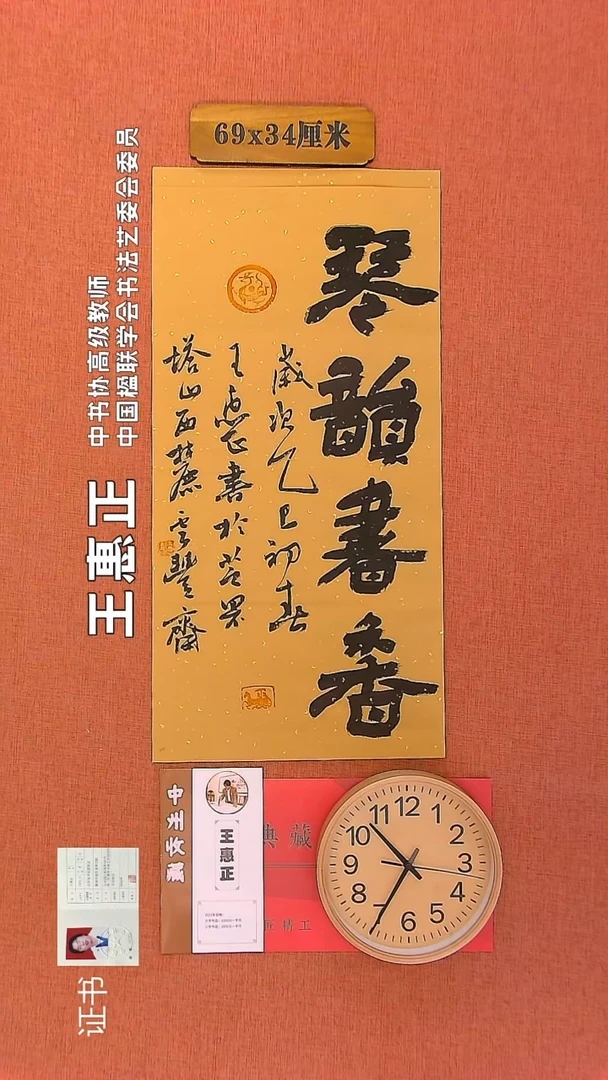 69x34厘米
琴韻書香
歲次乙巳初春
王惠正書於苍果
塔山西麓雲豐齋
王惠正
中书协高级教师
中国楹联学会书法艺委会委员
王惠正
典藏
匠精工
12
1
2
3
4
5
6
7
8
9
10
11
证书